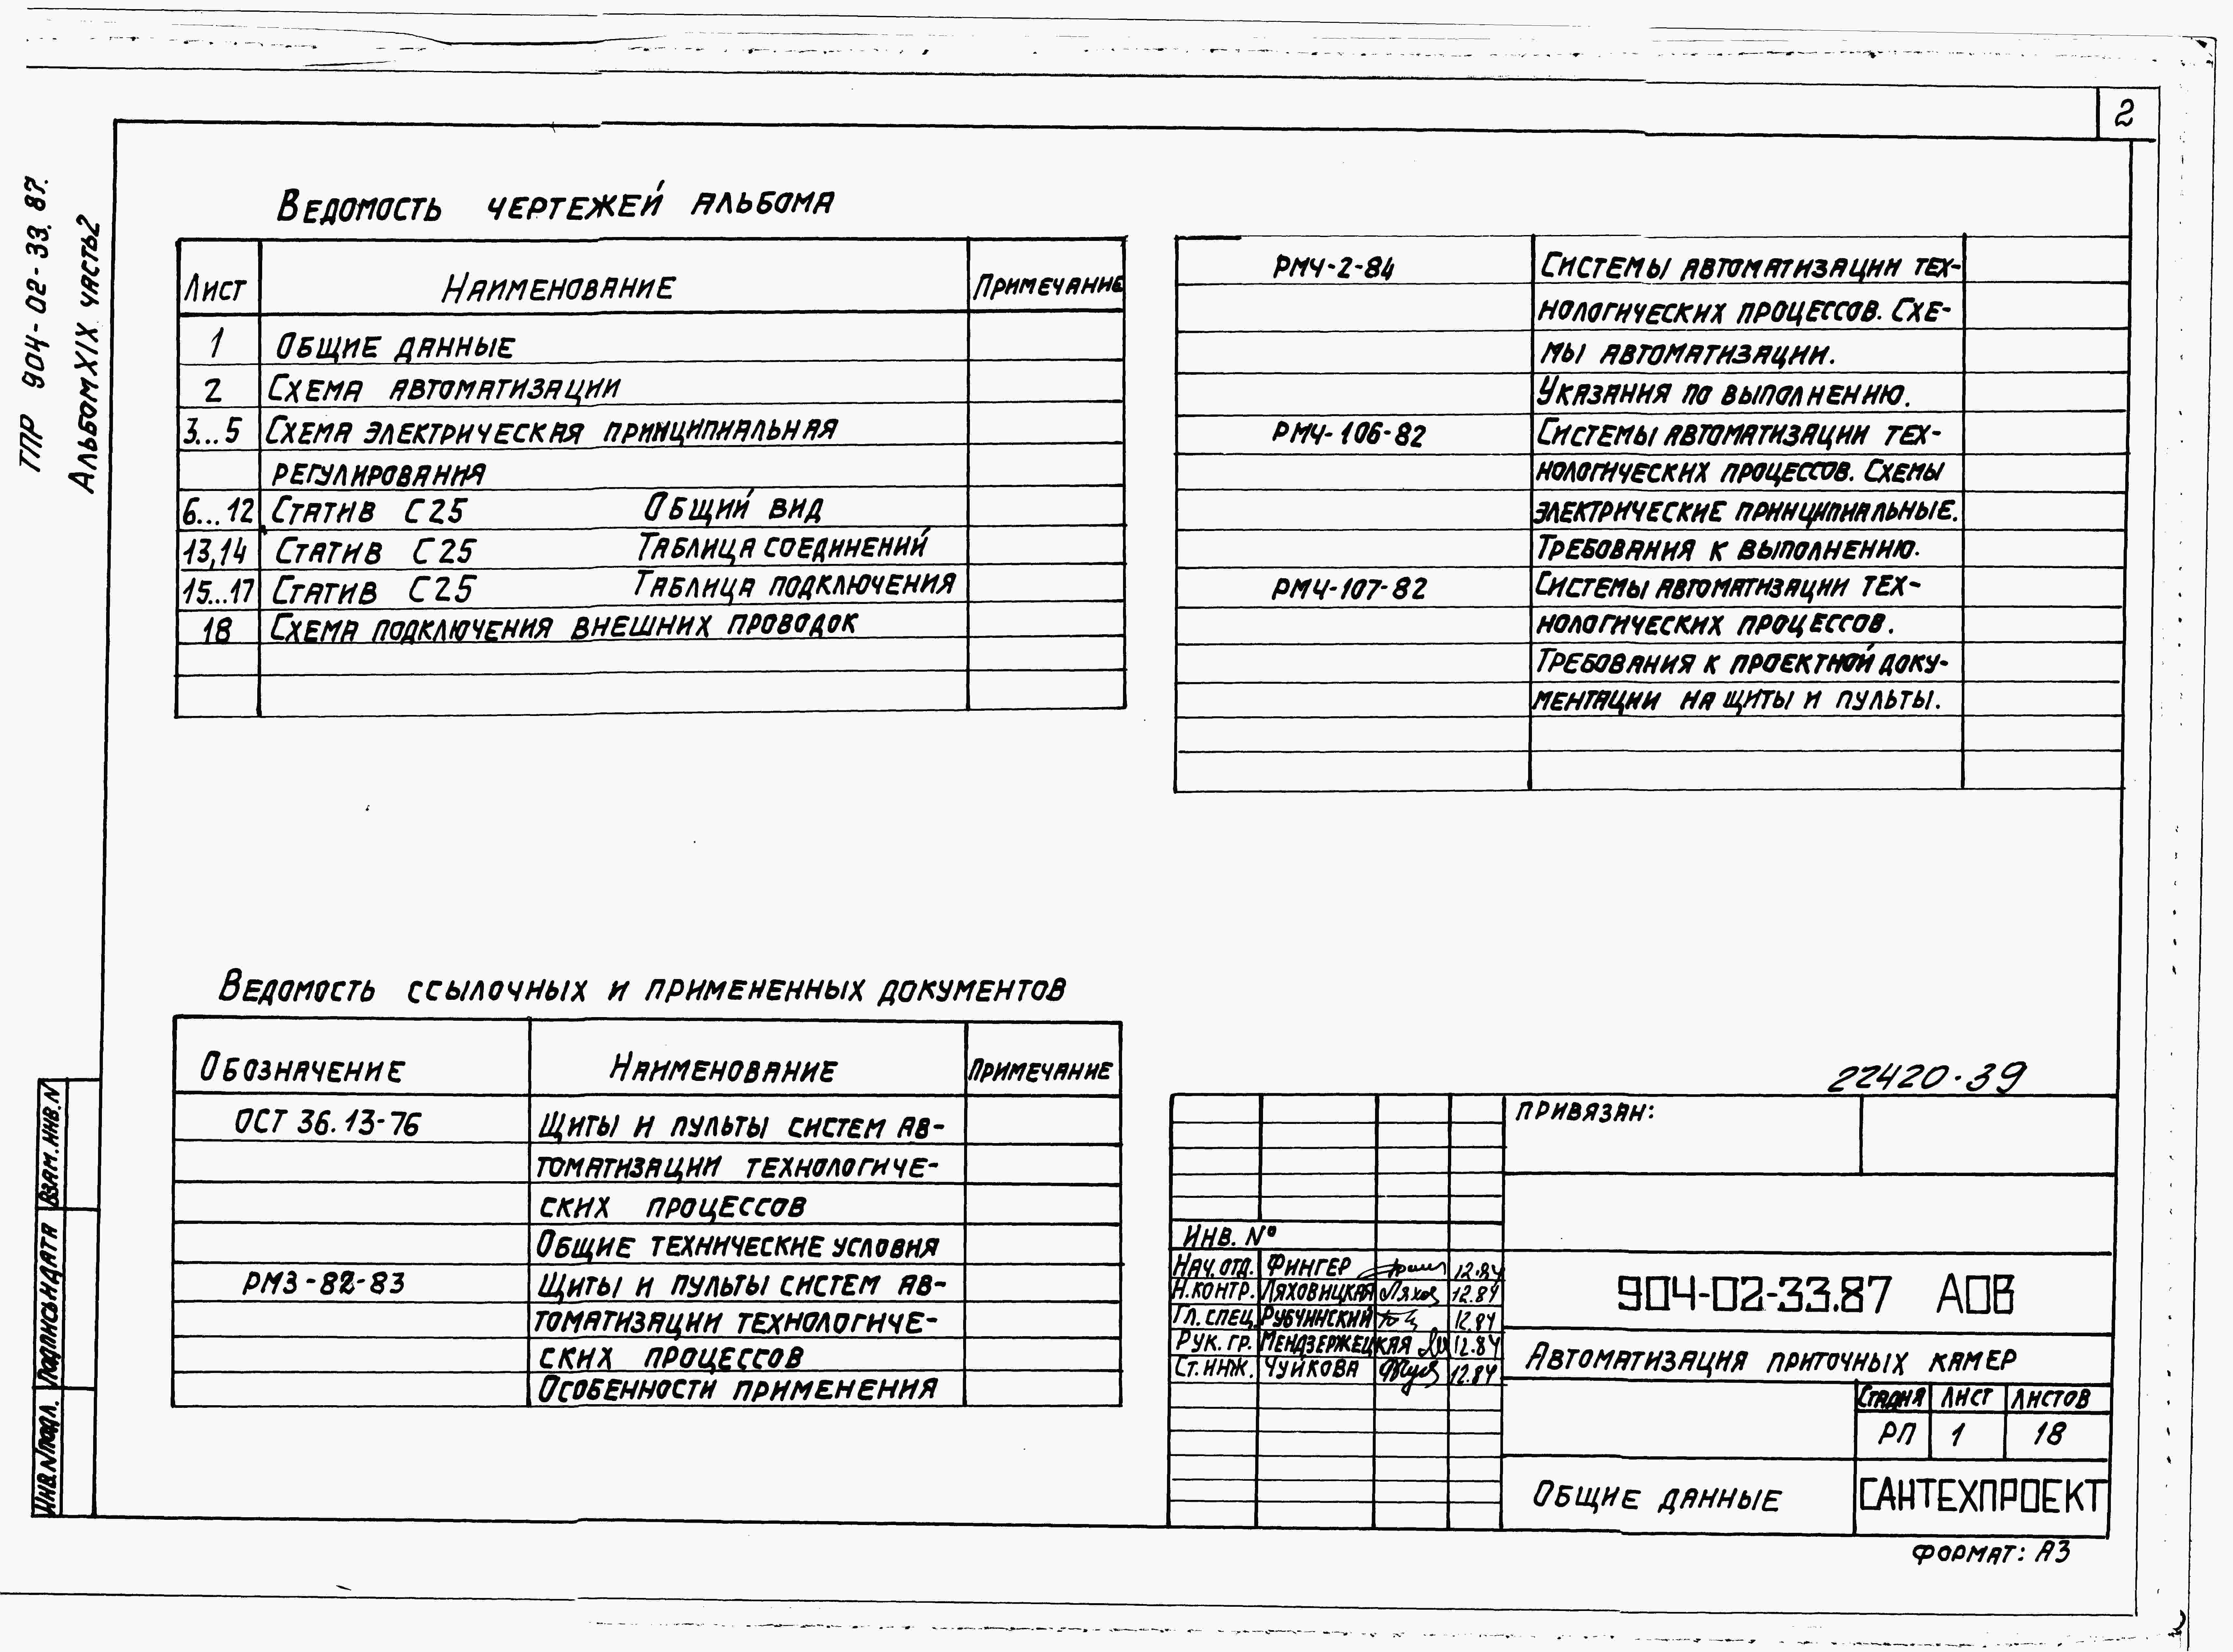 2
ТПР 904-02-33.87.
Альбом XIX часть 2
Ведомость чертежей альбома
Лист Наименование Примечание
1 Общие данные
2 Схема автоматизации
3...5 Схема электрическая принципиальная
регулирования
6...12 Статив С25 Общий вид
13,14 Статив С25 Таблица соединений
15...17 Статив С25 Таблица подключения
18 Схема подключения внешних проводок
РМ4-2-84 Системы автоматизации тех-
нологических процессов. Схе-
мы автоматизации.
Указания по выполнению.
РМ4-106-82 Системы автоматизации тех-
нологических процессов. Схемы
электрические принципиальные.
Требования к выполнению.
РМ4-107-82 Системы автоматизации тех-
нологических процессов.
Требования к проектной доку-
ментации на щиты и пульты.
Ведомость ссылочных и примененных документов
Обозначение Наименование Примечание
ОСТ 36.13-76 Щиты и пульты систем ав-
томатизации технологиче-
ских процессов
Общие технические условия
РМ3-82-83 Щиты и пульты систем ав-
томатизации технологиче-
ских процессов
Особенности применения
22420-39
Привязан:
Инв. №
Нач. отд. Фингер 12.84
Н. контр. Ляховицкая 12.84
Гл. спец. Рубчинский 12.84
Рук. гр. Мендзержецкая 12.84
Ст. инж. Чуйкова 12.84
904-02-33.87 АОВ
Автоматизация приточных камер
Стадия Лист Листов
РП 1 18
Общие данные
САНТЕХПРОЕКТ
Формат: А3
Взам. инв. N
Подпись и дата
Инв. N подл.